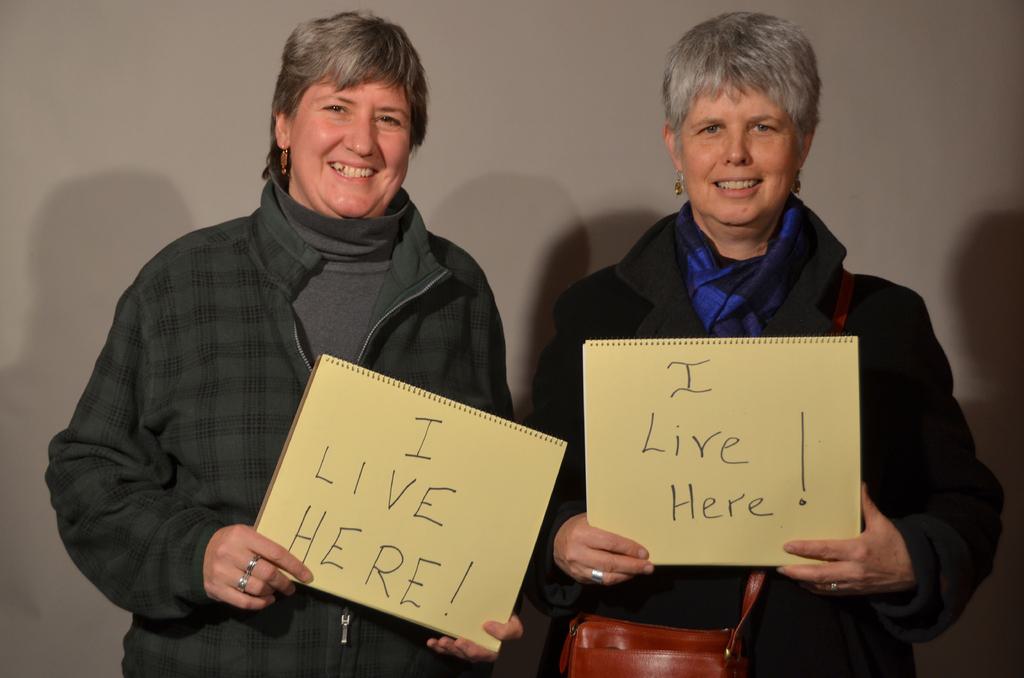 I
LIVE
HERE!
I
Live
Here!